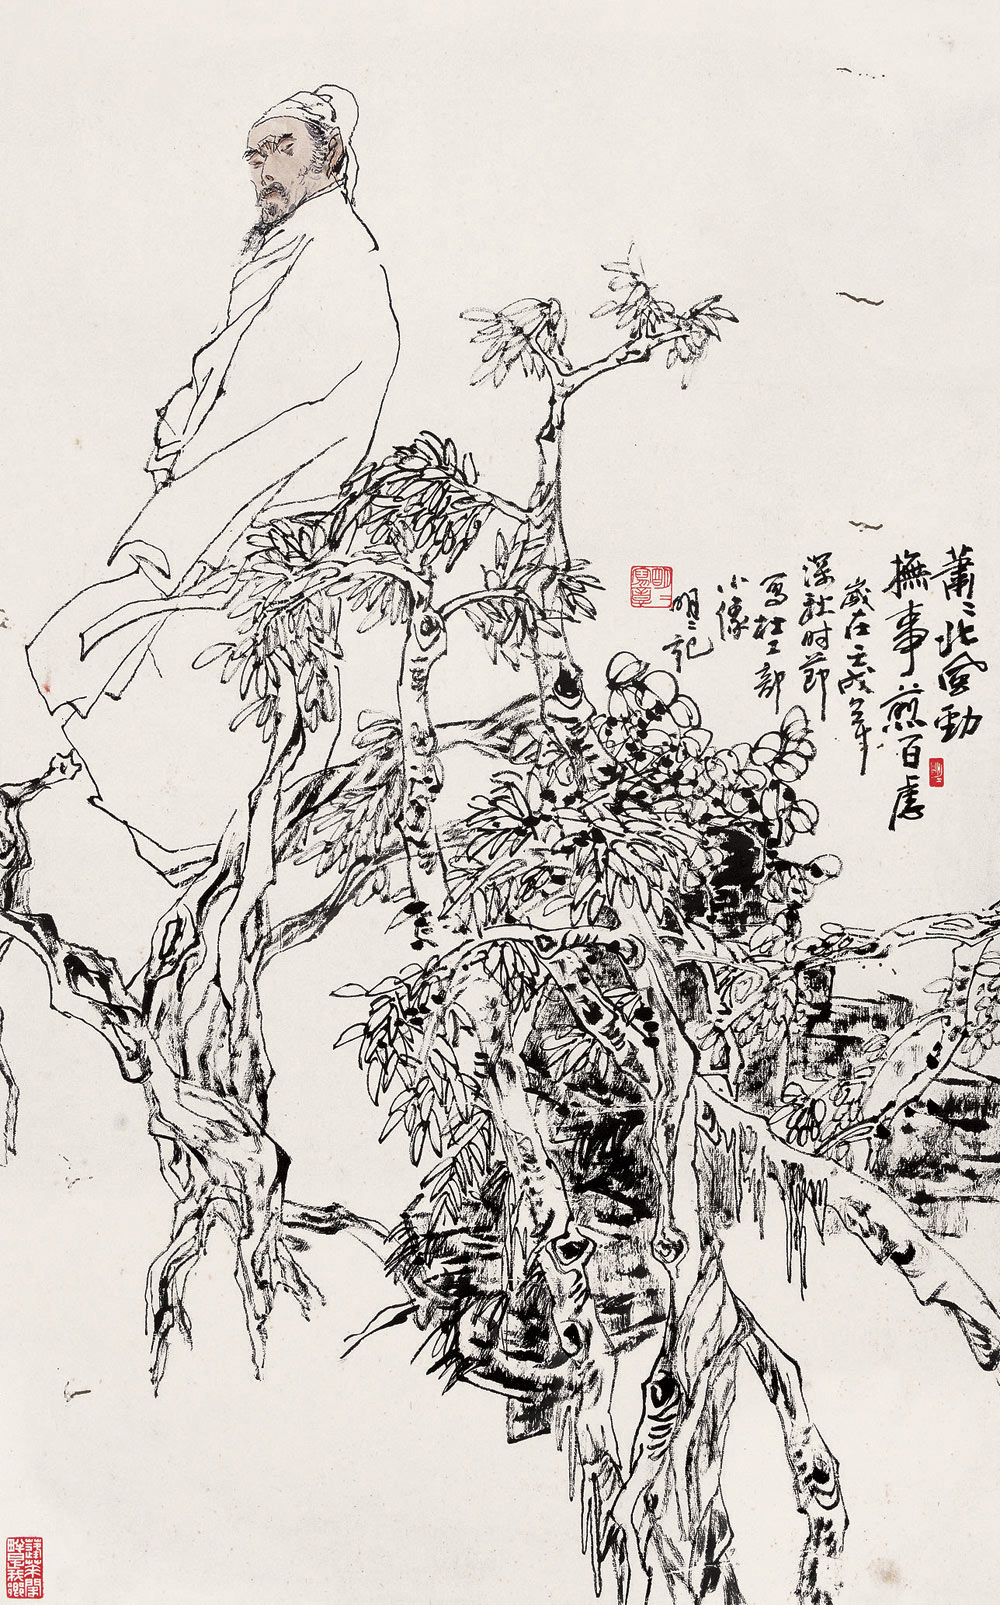 蕭〻北風勁
撫事煎百慮
歲在壬戌年
深秋时節
写杜工部
小像
明明記